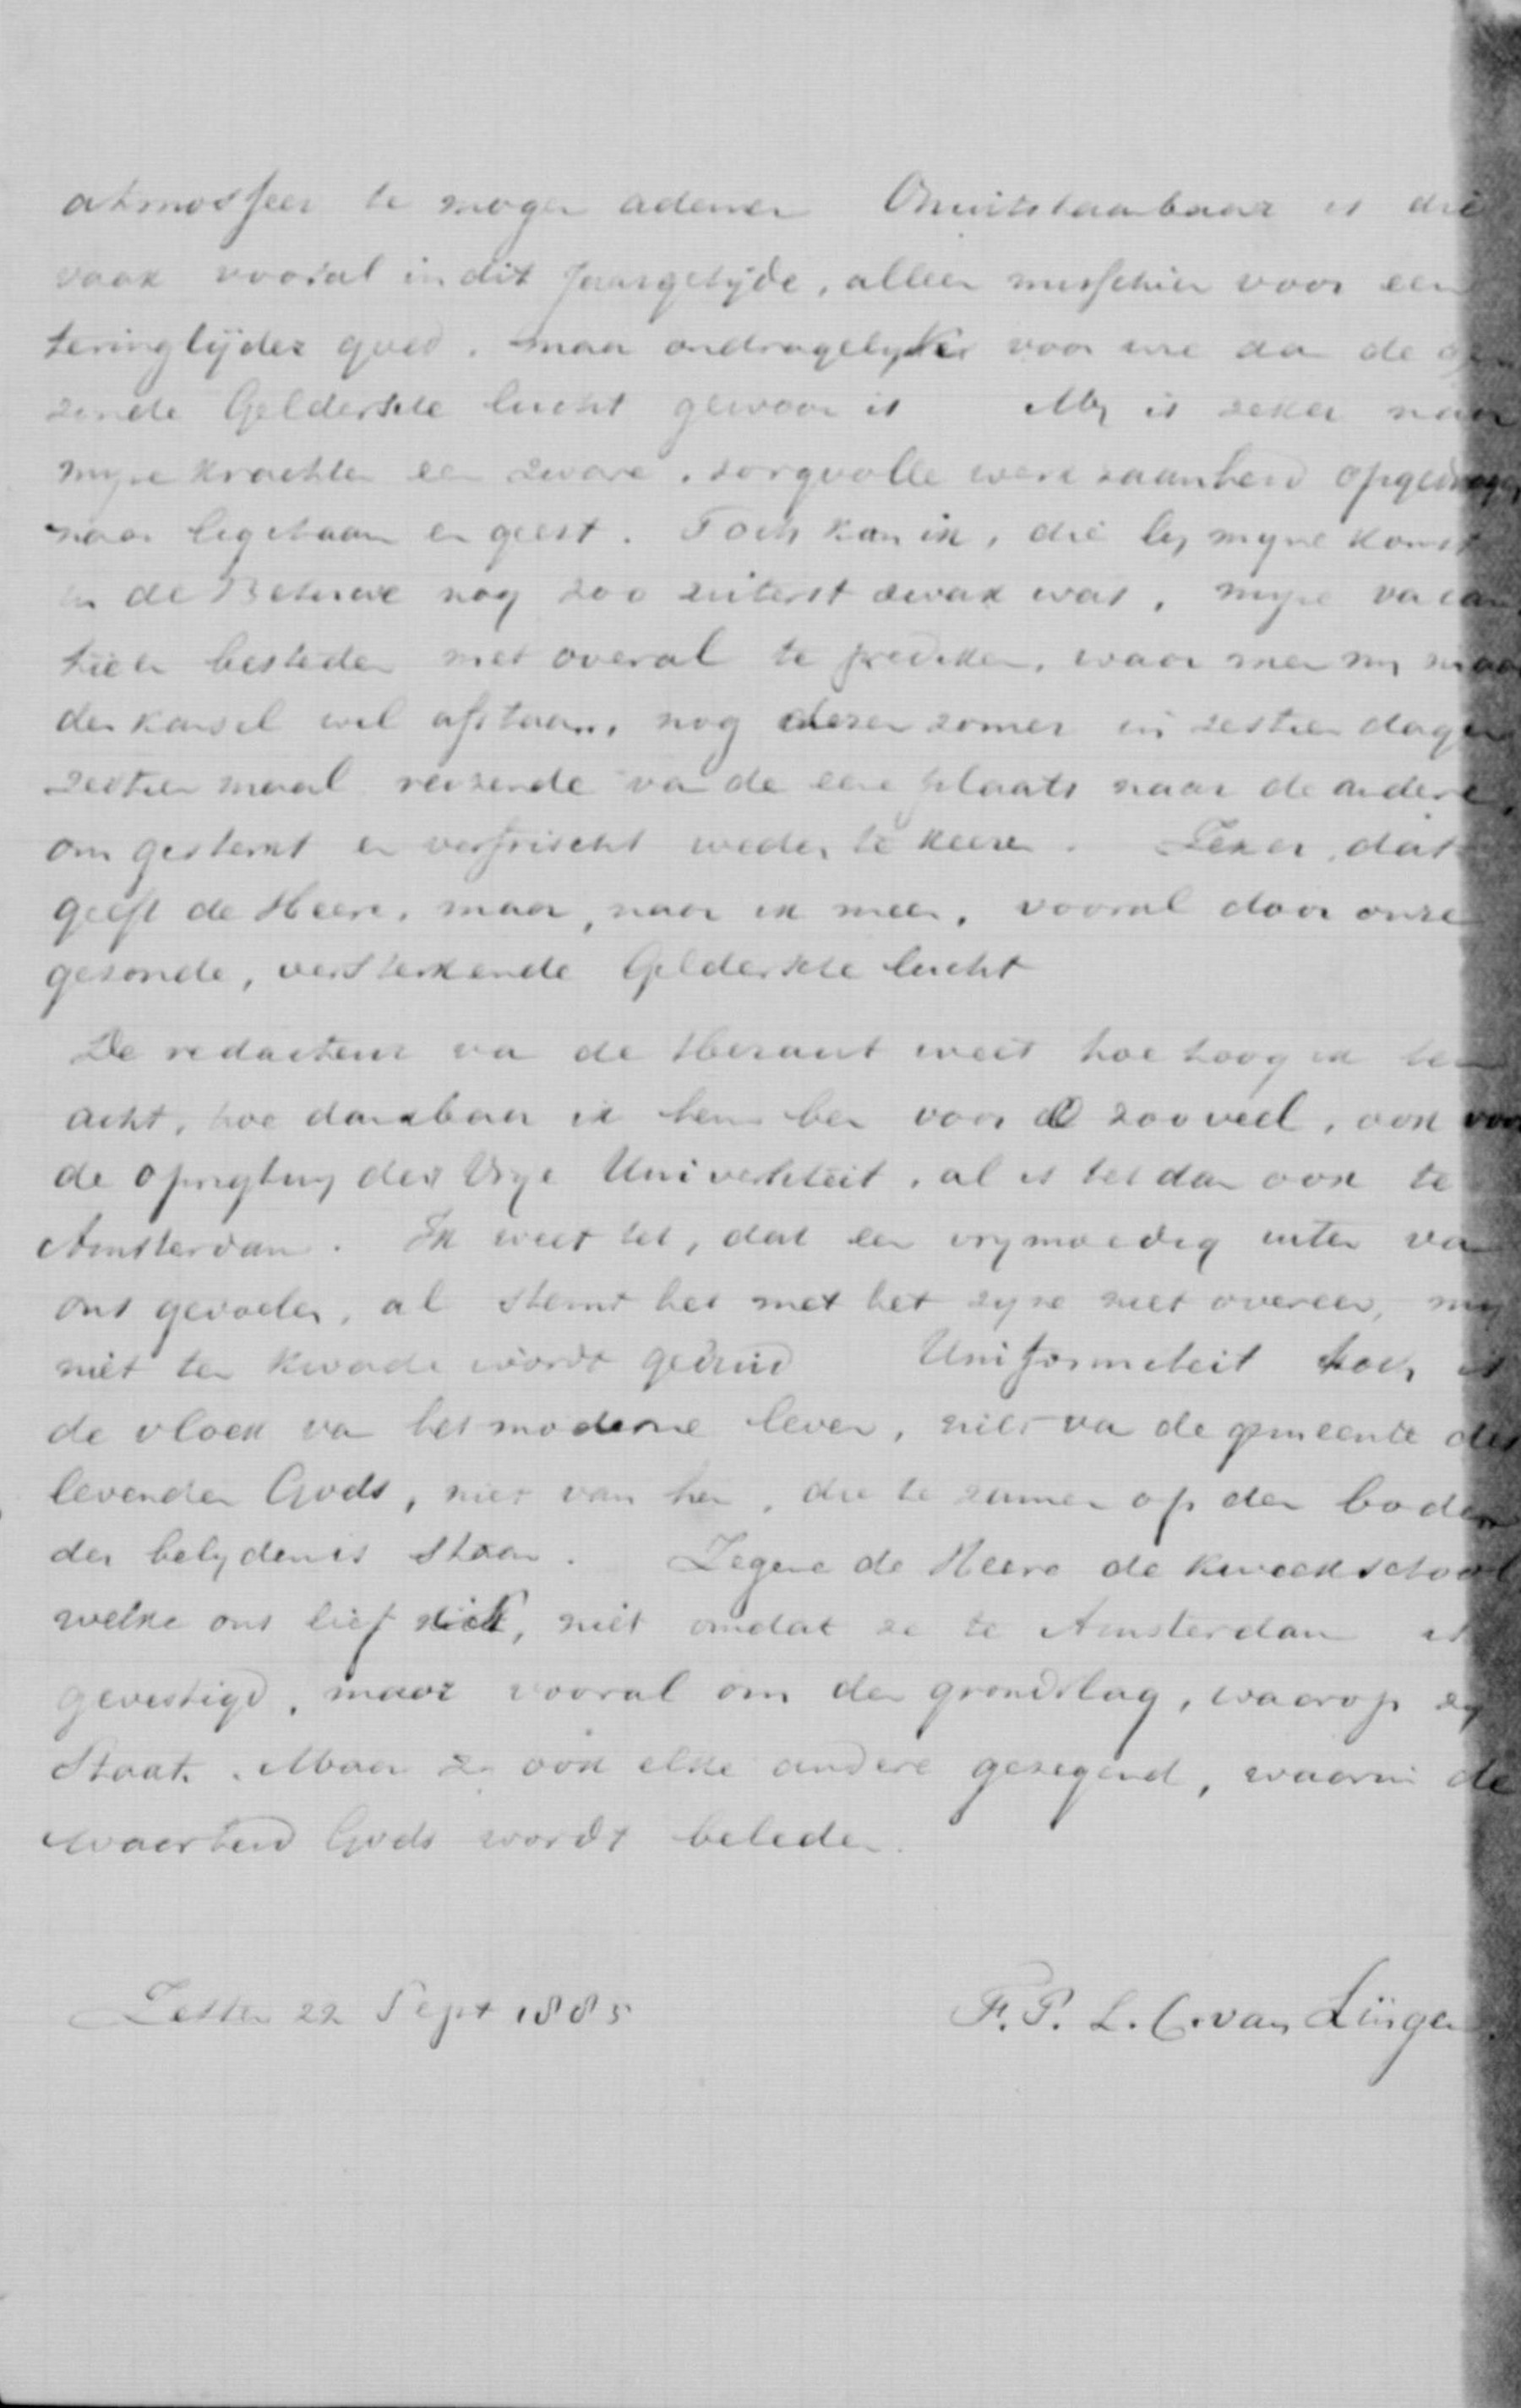 atmosfeer te mogen ademen Onuitstaanbaar is die
vaak vooral in dit jaargetijde, alleen misschien voor een
teringlijder goed, maar ondragelyker voor wie aan de
zonde Geldersche lucht gewoon is My is zeker naar
myne krachten een zware, zorgvolle werkzaamheid opgedragen
naar ligchaam en geest. Toch kan ik, die by myne komst
in de Betuwe nog zoo uiterst zwak was, myne vacan
tien besteden met overal te prediken, waar men my maar
den kansel wil afstaan, nog dezen zomer in zestien dagen
zestien maal reizende van de eene plaats naar de andere,
om gesterkt en verfrischt weder te keeren. Zeker, dat
geeft de Heere, maar, naar ik meen, vooral door onze
gezonde, versterkende Geldersche lucht
De redacteur van de Heraut weet hoe hoog ik hem
acht, hoe dankbaar ik hem ben voor zooveel, ook voor
de oprigting der Vrye Universiteit, al is het dan ook te
Amsterdam. Ik weet het, dat een vrymoedig uiten van
ons gevoelen, al stemt het met het zyne niet overeen, my
niet ten kwade wordt geduid Uniformiteit toch is
de vloek van het moderne leven, niet van de gemeente des
levenden Gods, niet van hen, die te zamen op den bodem
der belydenis staan. Zegene de Heere de kweekschool
welke ons lief is, niet omdat ze te Amsterdam is
gevestigd, maar vooral om den grondslag, waarop zy
staat. Maar zy ook elke andere gezegend, waarin de
waarheid Gods wordt beleden.
Zetten 22 Sept 1885 F. P. L. C. van Lingen